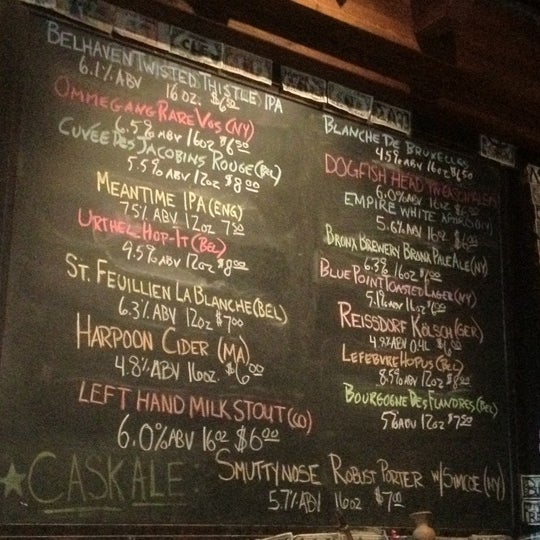 BELHAVEN TWISTED THISTLE IPA
6.1% ABV 16 OZ. $6.50
OMMEGANG RARE VOS (NY)
6.5% ABV 16OZ $6.50
CUVÉE DES JACOBINS ROUGE (BEL)
5.5% ABV 12OZ $8.00
MEANTIME IPA (ENG)
7.5% ABV 12OZ 7.50
URTHEL HOP-IT (BEL)
9.5% ABV 12OZ $8.00
ST. FEUILLIEN LA BLANCHE (BEL)
6.3% ABV 12OZ $7.00
HARPOON CIDER (MA)
4.8% ABV 16OZ. $6.00
LEFT HAND MILK STOUT (CO)
6.0% ABV 16OZ $6.00
BLANCHE DE BRUXELLES
4.5% ABV 16OZ $6.50
DOGFISH HEAD
6.0% ABV 16OZ
EMPIRE WHITE
5.6% ABV 16OZ
BRONX BREWERY BRONX PALE ALE (NY)
6.3% 16OZ
BLUE POINT TOASTED LAGER (NY)
5.1% ABV 16OZ
REISSDORF KÖLSCH (GER)
4.8% ABV 0.4L
LEFEBVRE HOPUS (BEL)
8.5% ABV 12OZ
BOURGOGNE DES FLANDRES (BEL)
5% ABV 12OZ $7.50
★CASK ALE SMUTTYNOSE ROBUST PORTER W/ SIMCOE (NY)
5.7% ABV 16OZ $7.00